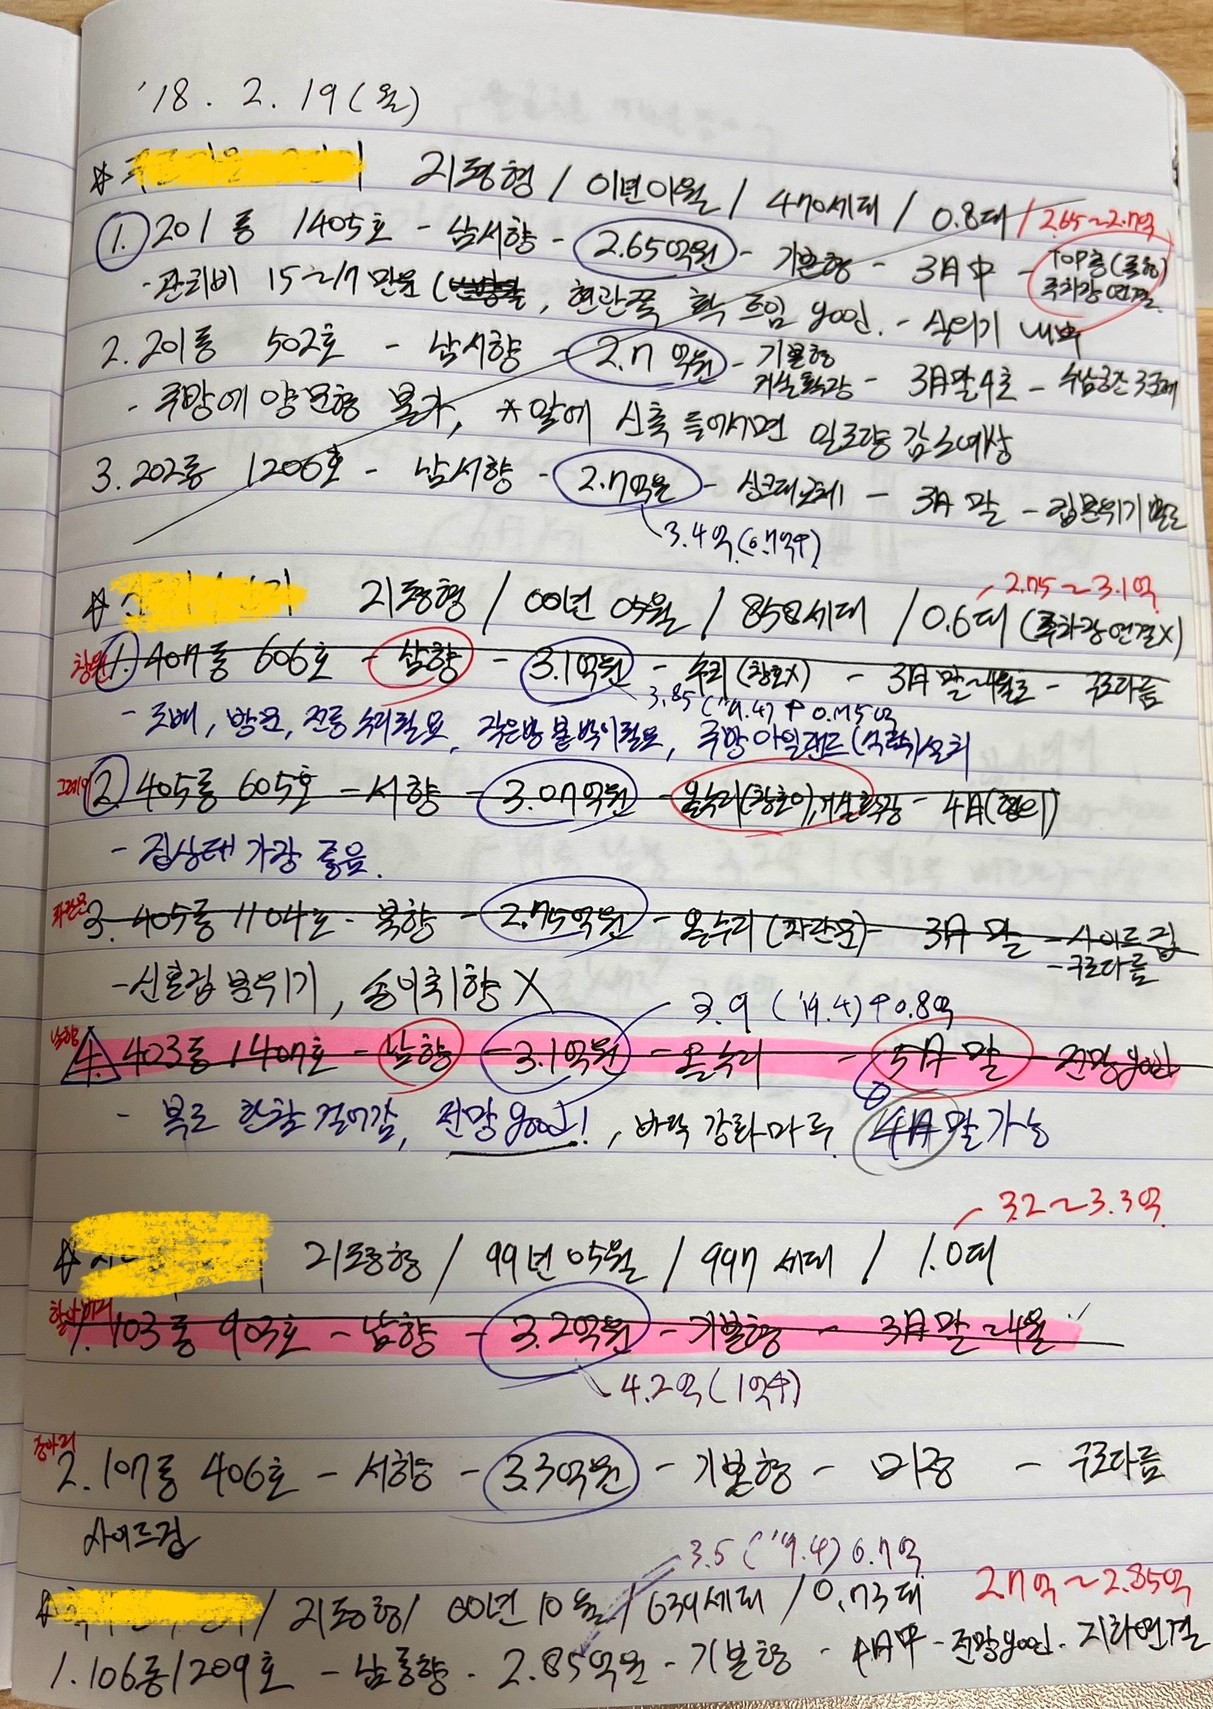 '18. 2. 19(월)
☆ 리폼형 / 01년 01월 / 470세대 / 0.8대 / 2.65~2.7억
1. 201동 1405호 - 남서향 - 2.65억원 - 기본형 - 3月中 - TOP층(로얄)
주차장 연결
- 관리비 15~17만원 ( , 현관쪽 확 트임 good. - 분위기
2. 201동 502호 - 남서향 - 2.7억원 - 기본형 거실확장 - 3月말 4초 - 수납공간
- 주방에 양문형 불가, *앞에 신축 들어서면 일조량 감소예상
3. 202동 1206호 - 남서향 - 2.7억원 - 싱크대교체 - 3月말 - 집분위기 별로
3.4억(0.7억↑)
☆ / 00년 05월 / 858세대 / 0.6대 (주차장연결X) 2.75~3.1억
1. 407동 606호 - 남향 - 3.1억원 - 수리(창호X) - 3月말~4월초 - 구조다름
3.85('19.4)↑0.75억
- 도배, 방문, 전등 수리필요, 작은방 붙박이필요, 주방 아일랜드(식탁)설치
2. 405동 605호 - 서향 - 3.07억원 - 올수리(창호O), 거실확장 - 4月(협의)
- 집상태 가장 좋음.
3. 405동 1104호 - 북향 - 2.75억원 - 올수리 - 3月말 - 사이드집
- 구조다름
- 신혼집 분위기, 취향 X
3.9 ('19.4)↑0.8억
남향 4. 403동 1407호 - 남향 - 3.1억원 - 올수리 - 5月말 - 전망good
- 복도 한참 걸어감, 전망 good!, 바닥 강화마루, 4月말 가능
3.2~3.3억
☆ / 99년 05월 / 997세대 / 1.0대
할아버지 1. 103동 903호 - 남향 - 3.2억원 - 기본형 - 3月말~4월
4.2억(1억↑)
2. 107동 406호 - 서향 - 3.3억원 - 기본형 - 미정 - 구조다름
사이드집
3.5('19.4) 0.7억
☆ / 00년 10월 / 639세대 / 0.73대 2.7억~2.85억
1. 106동 1209호 - 남동향 - 2.85억원 - 기본형 - 4月中 - 전망good - 지하연결